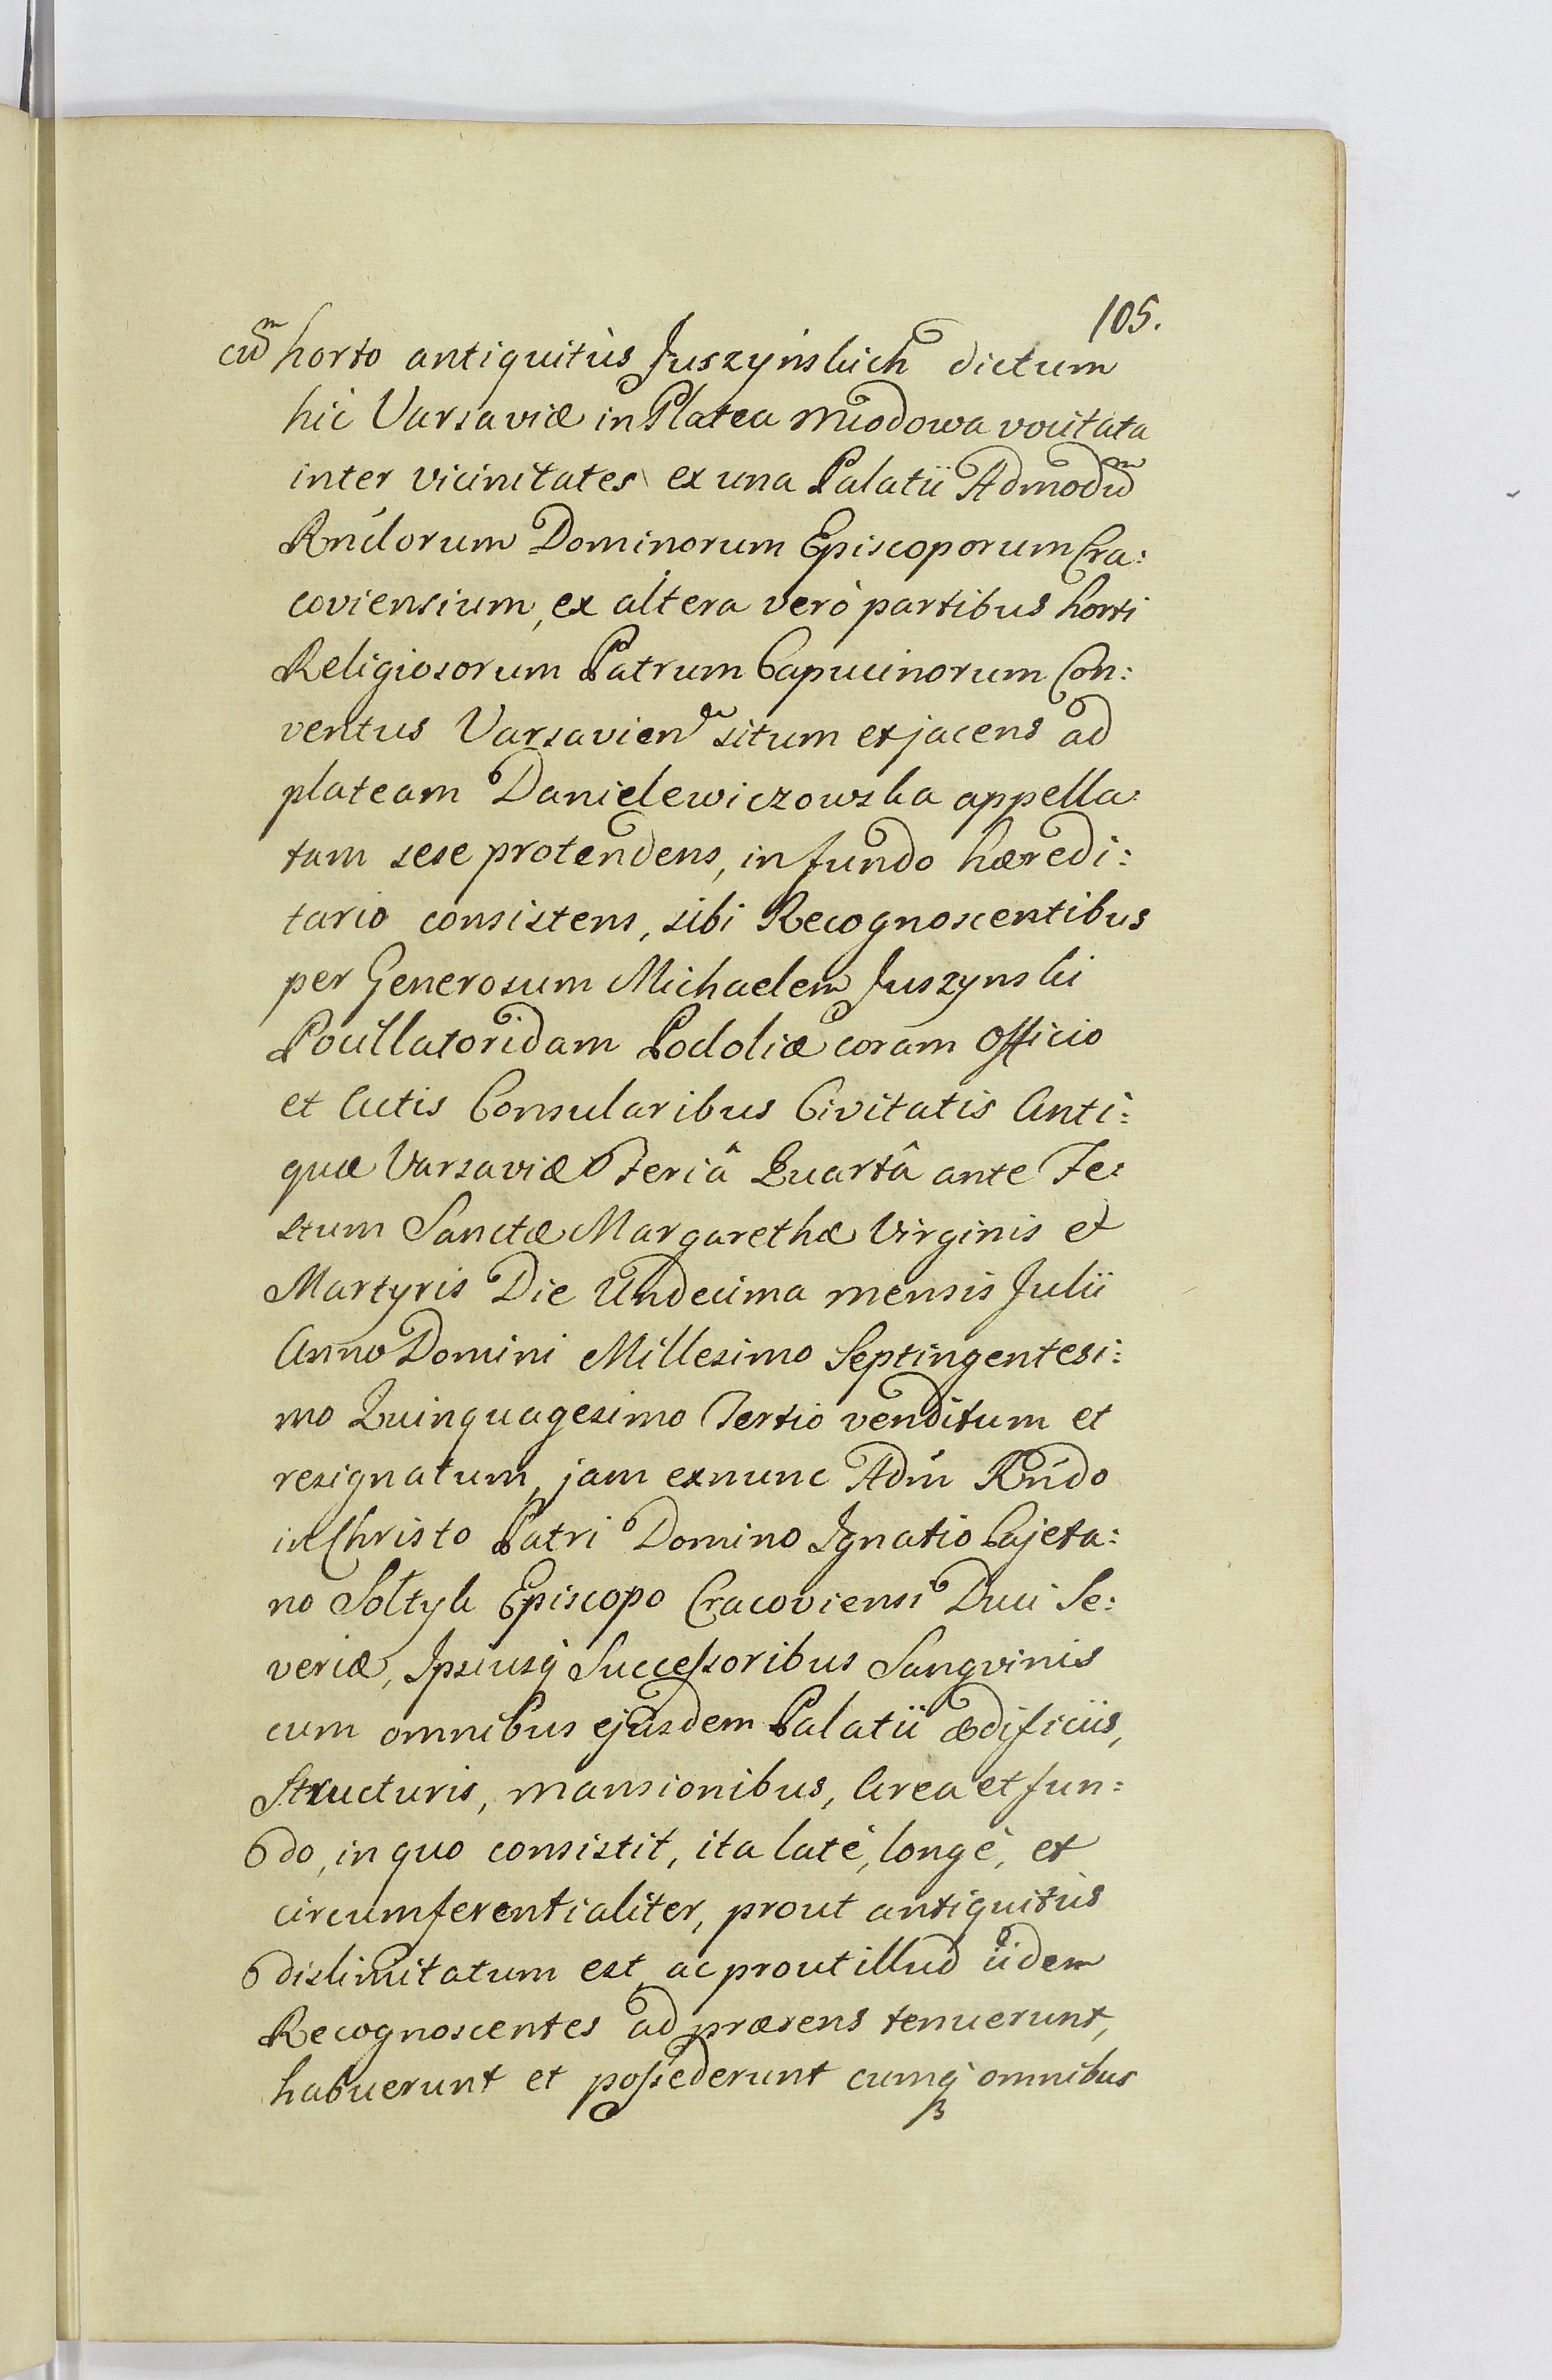 105.
cu͠m horto antiquitùs Juszyńskich dictum
hic Varsaviæ in Platea Miodowa vocitata
inter vicinitates ex una Palatii Admodu͠m
Rńdorum Dominorum Episcoporum Cra:
coviensium, ex altera verò partibus horti
Religiosorum Patrum Capucinorum Con:
ventus Varsavien situm et jacens ad
plateam Danielewiczowska appella:
tam sese protendens, in fundo hæredi:
tario consistens, sibi Recognoscentibus
per Generosum Michaelem Juszynski
Pocillatoridam Podoliæ coram Officio
et Actis Consularibus Civitatis Anti:
quæ Varsaviæ Feriâ Quartâ ante Fe:
stum Sanctæ Margarethæ Virginis et
Martyris Die Undecima mensis Julii
Anno Domini Millesimo Septingentesi:
mo Quinquagesimo Tertio venditum et
resignatum, jam exnunc Adḿ Rńdo
in Christo Patri Domino Ignatio Cajeta:
no Sołtyk Episcopo Cracoviensi Duci Se:
veriæ, Ipsiusq́ Successoribus Sangvinis
cum omnibus ejusdem Palatii ædificiis,
Structuris, mansionibus, Area et fun:
do, in quo consistit, ita latè, longè, et
circumferentialiter, prout antiquitùs
dislimitatum est, ac prout illud iidem
Recognoscentes ad præsens tenuerunt,
habuerunt et possederunt cumq́ omnibus